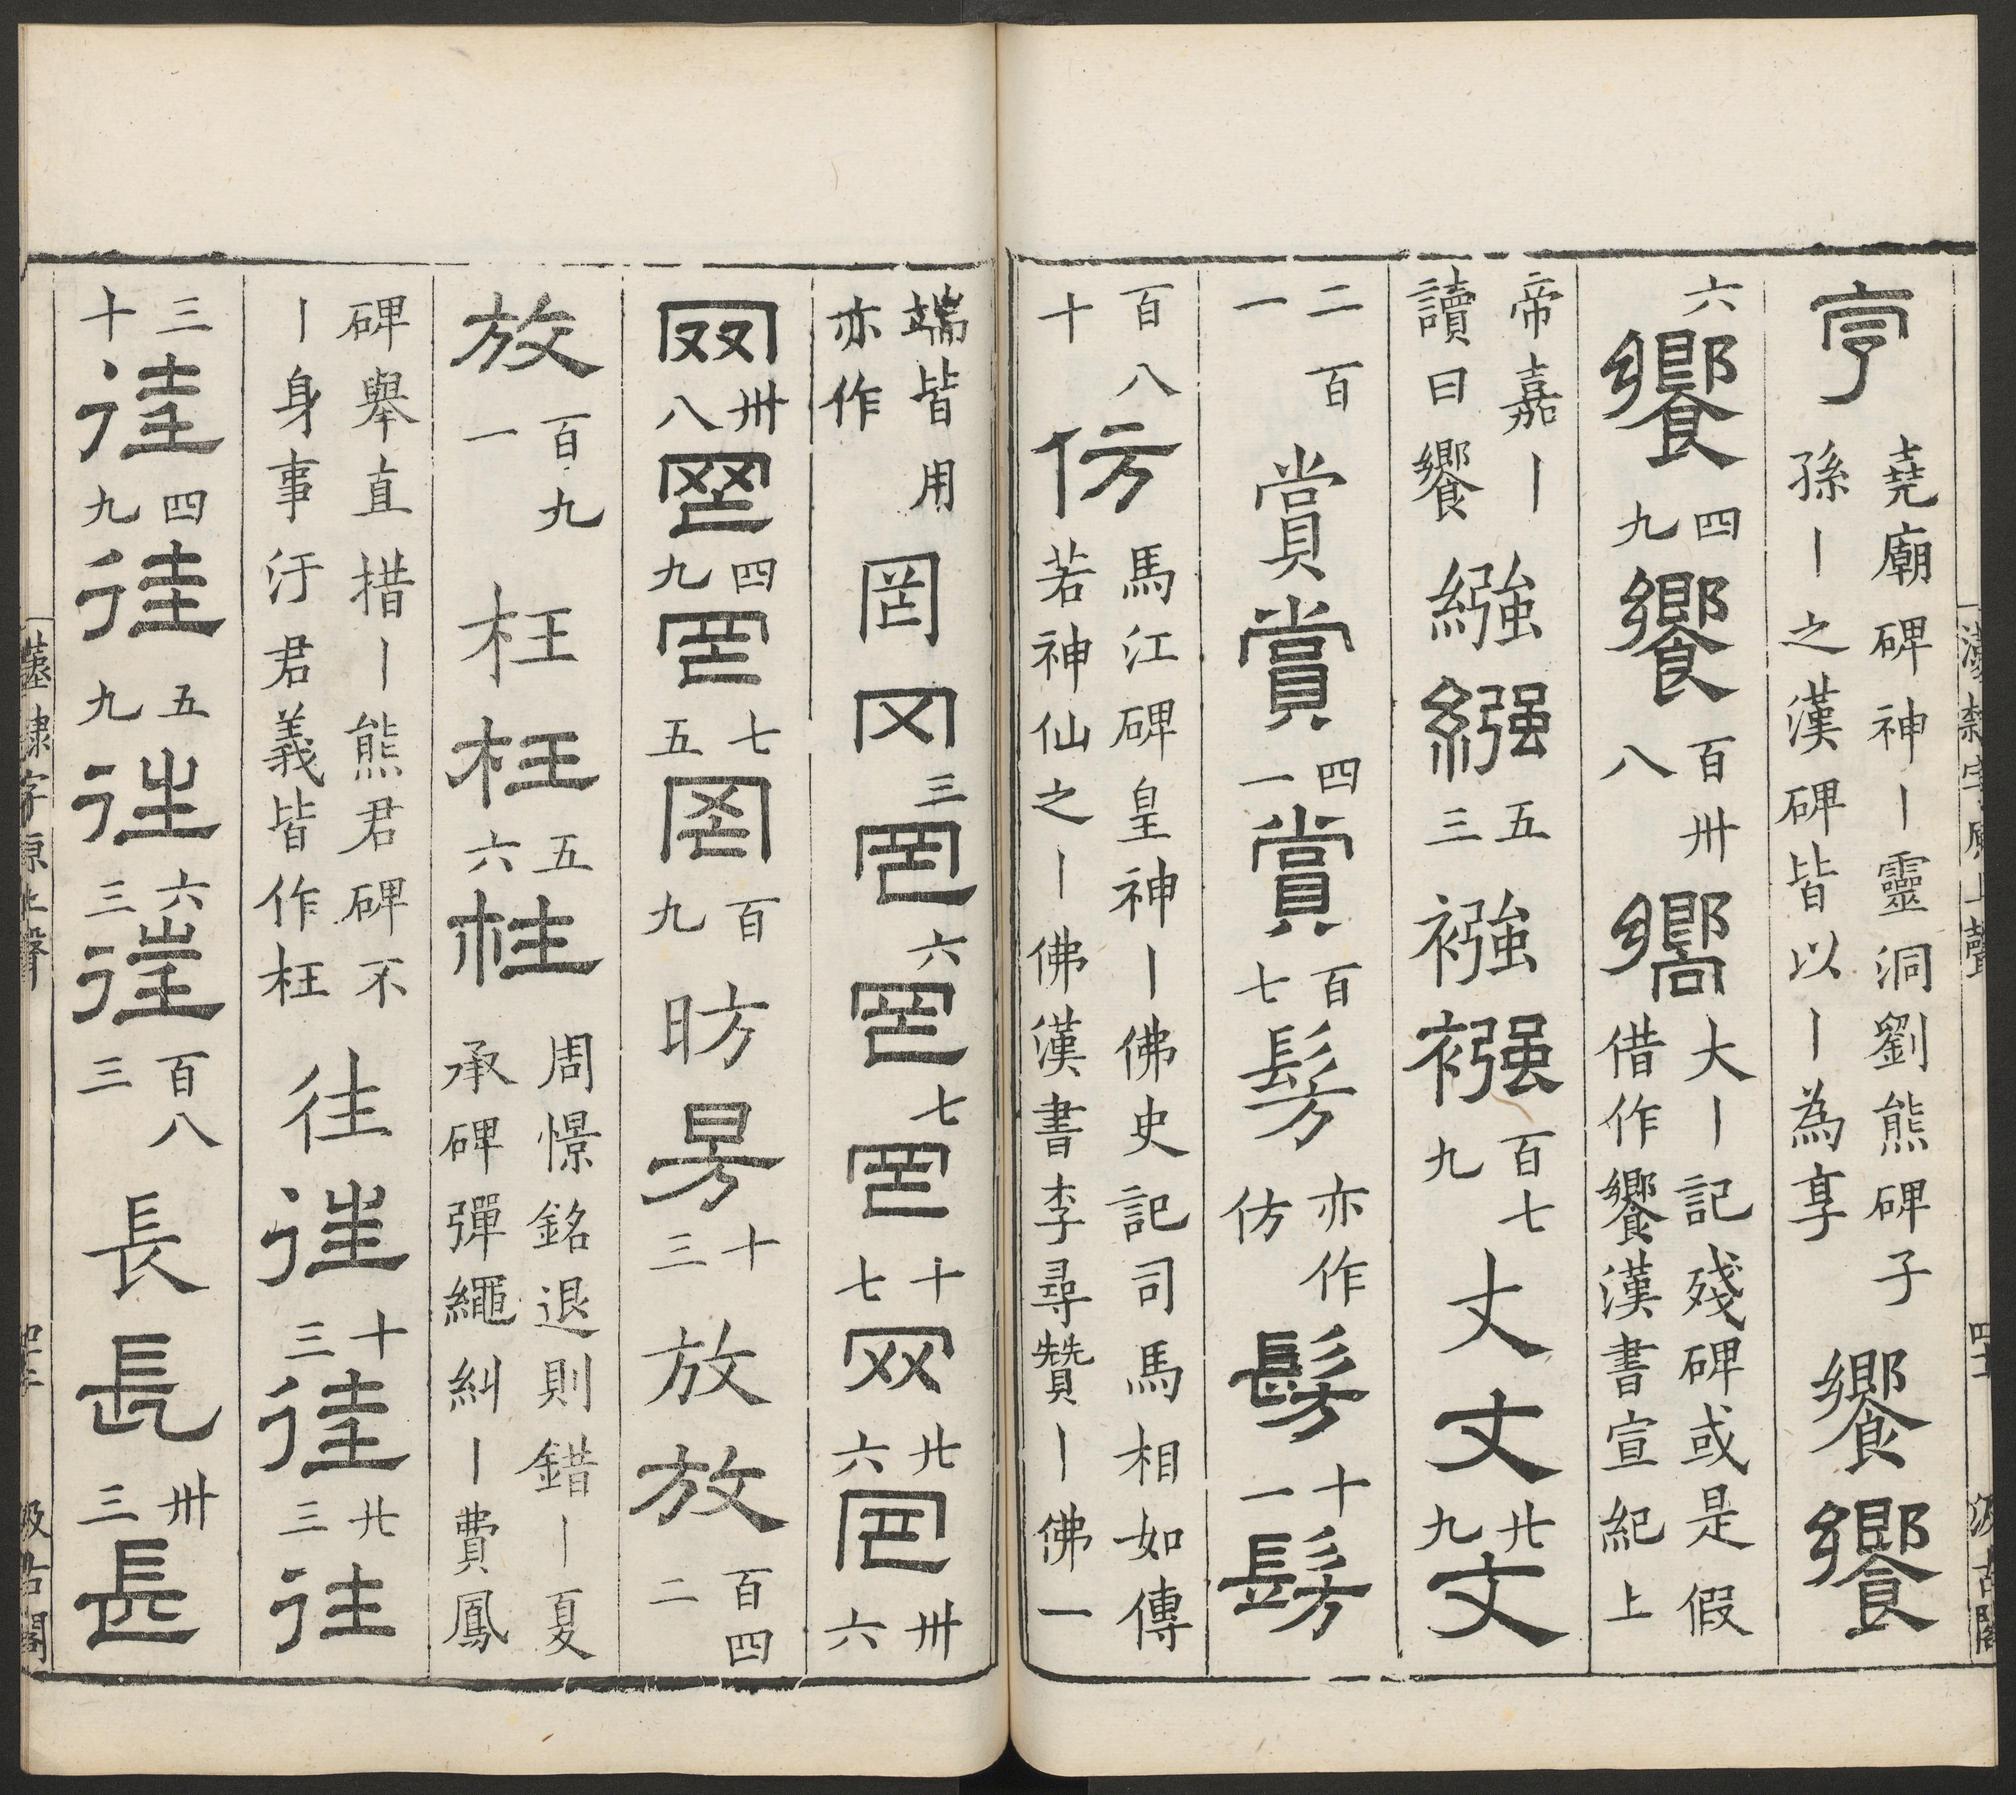 亨 堯廟碑神丨靈洞劉熊碑子孫丨之漢碑皆以丨為享 饗 饗
六 饗 四九 饗 百卅八 饗 大丨記殘碑或是假借作饗漢書宣紀上
帝嘉丨讀曰饗 繦 繦 五三 襁 襁 百七九 丈 丈 廿九 丈
二百一 賞 賞 四一 賞 百七 髣 亦作仿 髣 十一 髣
百八十 仿 馬江碑皇神丨佛史記司馬相如傳若神仙之丨佛漢書李尋贊丨佛一
端皆用亦作 罔 网 三 罔 六 罔 七 罔 十七 网 廿六 罔 卅六
网 卅八 罔 四九 罔 七五 罔 百九 昉 昉 十三 放 放 百四二
放 百九一 枉 枉 五六 枉 周憬銘退則錯丨夏承碑彈繩糾丨費鳳
碑舉直措丨熊君碑不丨身事汙君義皆作枉 往 往 十三 往 廿三 往
三十 往 四九 往 五九 往 六三 往 百八三 長 長 卅三 長
漢隸字原上聲 汲古閣